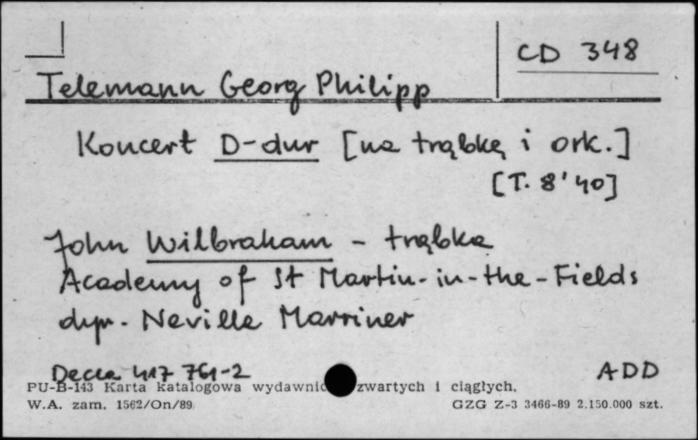 CD 348
Telemann Georg Philipp
Koncert D-dur [na trąbkę i ork.]
[T. 8'40]
John Wilbraham - trąbka
Academy of St Martin-in-the-Fields
dyr. Neville Marriner
Decca 417 761-2 ADD
PU-B-143 Karta katalogowa wydawnic zwartych i ciągłych.
W.A. zam. 1562/On/89 GZG Z-3 3466-89 2.150.000 szt.